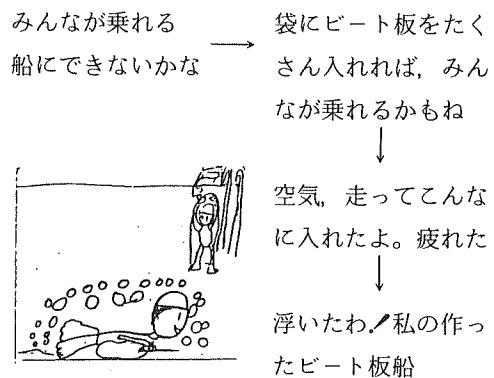 みんなが乗れる
船にできないかな
→
袋にビート板をたく
さん入れれば，みん
なが乗れるかもね
↓
空気，走ってこんな
に入れたよ。疲れた
↓
浮いたわ！私の作っ
たビート板船